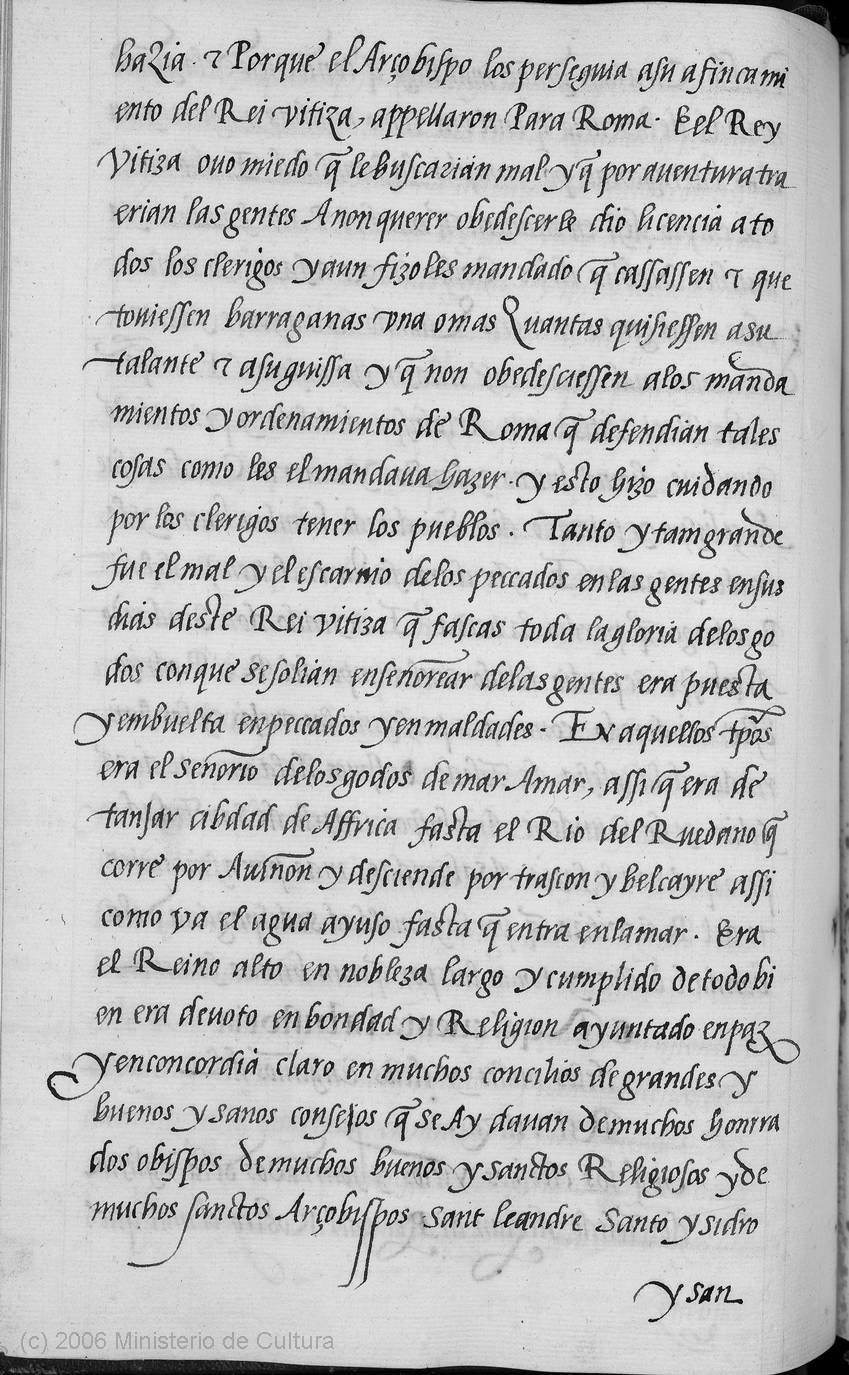 hazia · ⁊ Porque el Arçobispo los perseguia asu afincami
ento del Rei vitiza, appellaron Para Roma · E el Rey
Vitiza ouo miedo q̃ le buscarian mal y q̃ por auentura tra
erian las gentes A non querer obedescerle dio licencia a to
dos los clerigos y aun fizoles mandado q̃ cassassen ⁊ que
touiessen barraganas vna o mas Quantas quisiessen a su
talante ⁊ asu guissa y q̃ non obedesciessen alos manda
mientos y ordenamientos de Roma q̃ defendian tales
cosas como les el mandaua hazer · y esto hizo cuidando
por los clerigos tener los pueblos · Tanto y tam grande
fue el mal y el escarnio delos peccados en las gentes en sus
dias deste Rei vitiza q̃ fascas toda la gloria delos go
dos con que se solian enseñorear delas gentes era puesta
y embuelta en peccados y en maldades · En aquellos tp̃os
era el señorio delos godos de mar Amar, assi q̃ era de
tanjar cibdad de Affrica fasta el Rio del Ruedano q̃
corre por Auiñon y desciende por trascon y belcayre assi
como va el agua ayuso fasta q̃ entra en la mar · Era
el Reino alto en nobleza largo y cumplido de todo bi
en era deuoto en bondad y Religion ayuntado en paz
y en concordia claro en muchos concilios de grandes y
buenos y sanos consejos q̃ se Ay dauan de muchos honrra
dos obispos de muchos buenos y sanctos Religiosos y de
muchos sanctos Arçobispos Sant leandre Santo ysidro
y san
(c) 2006 Ministerio de Cultura